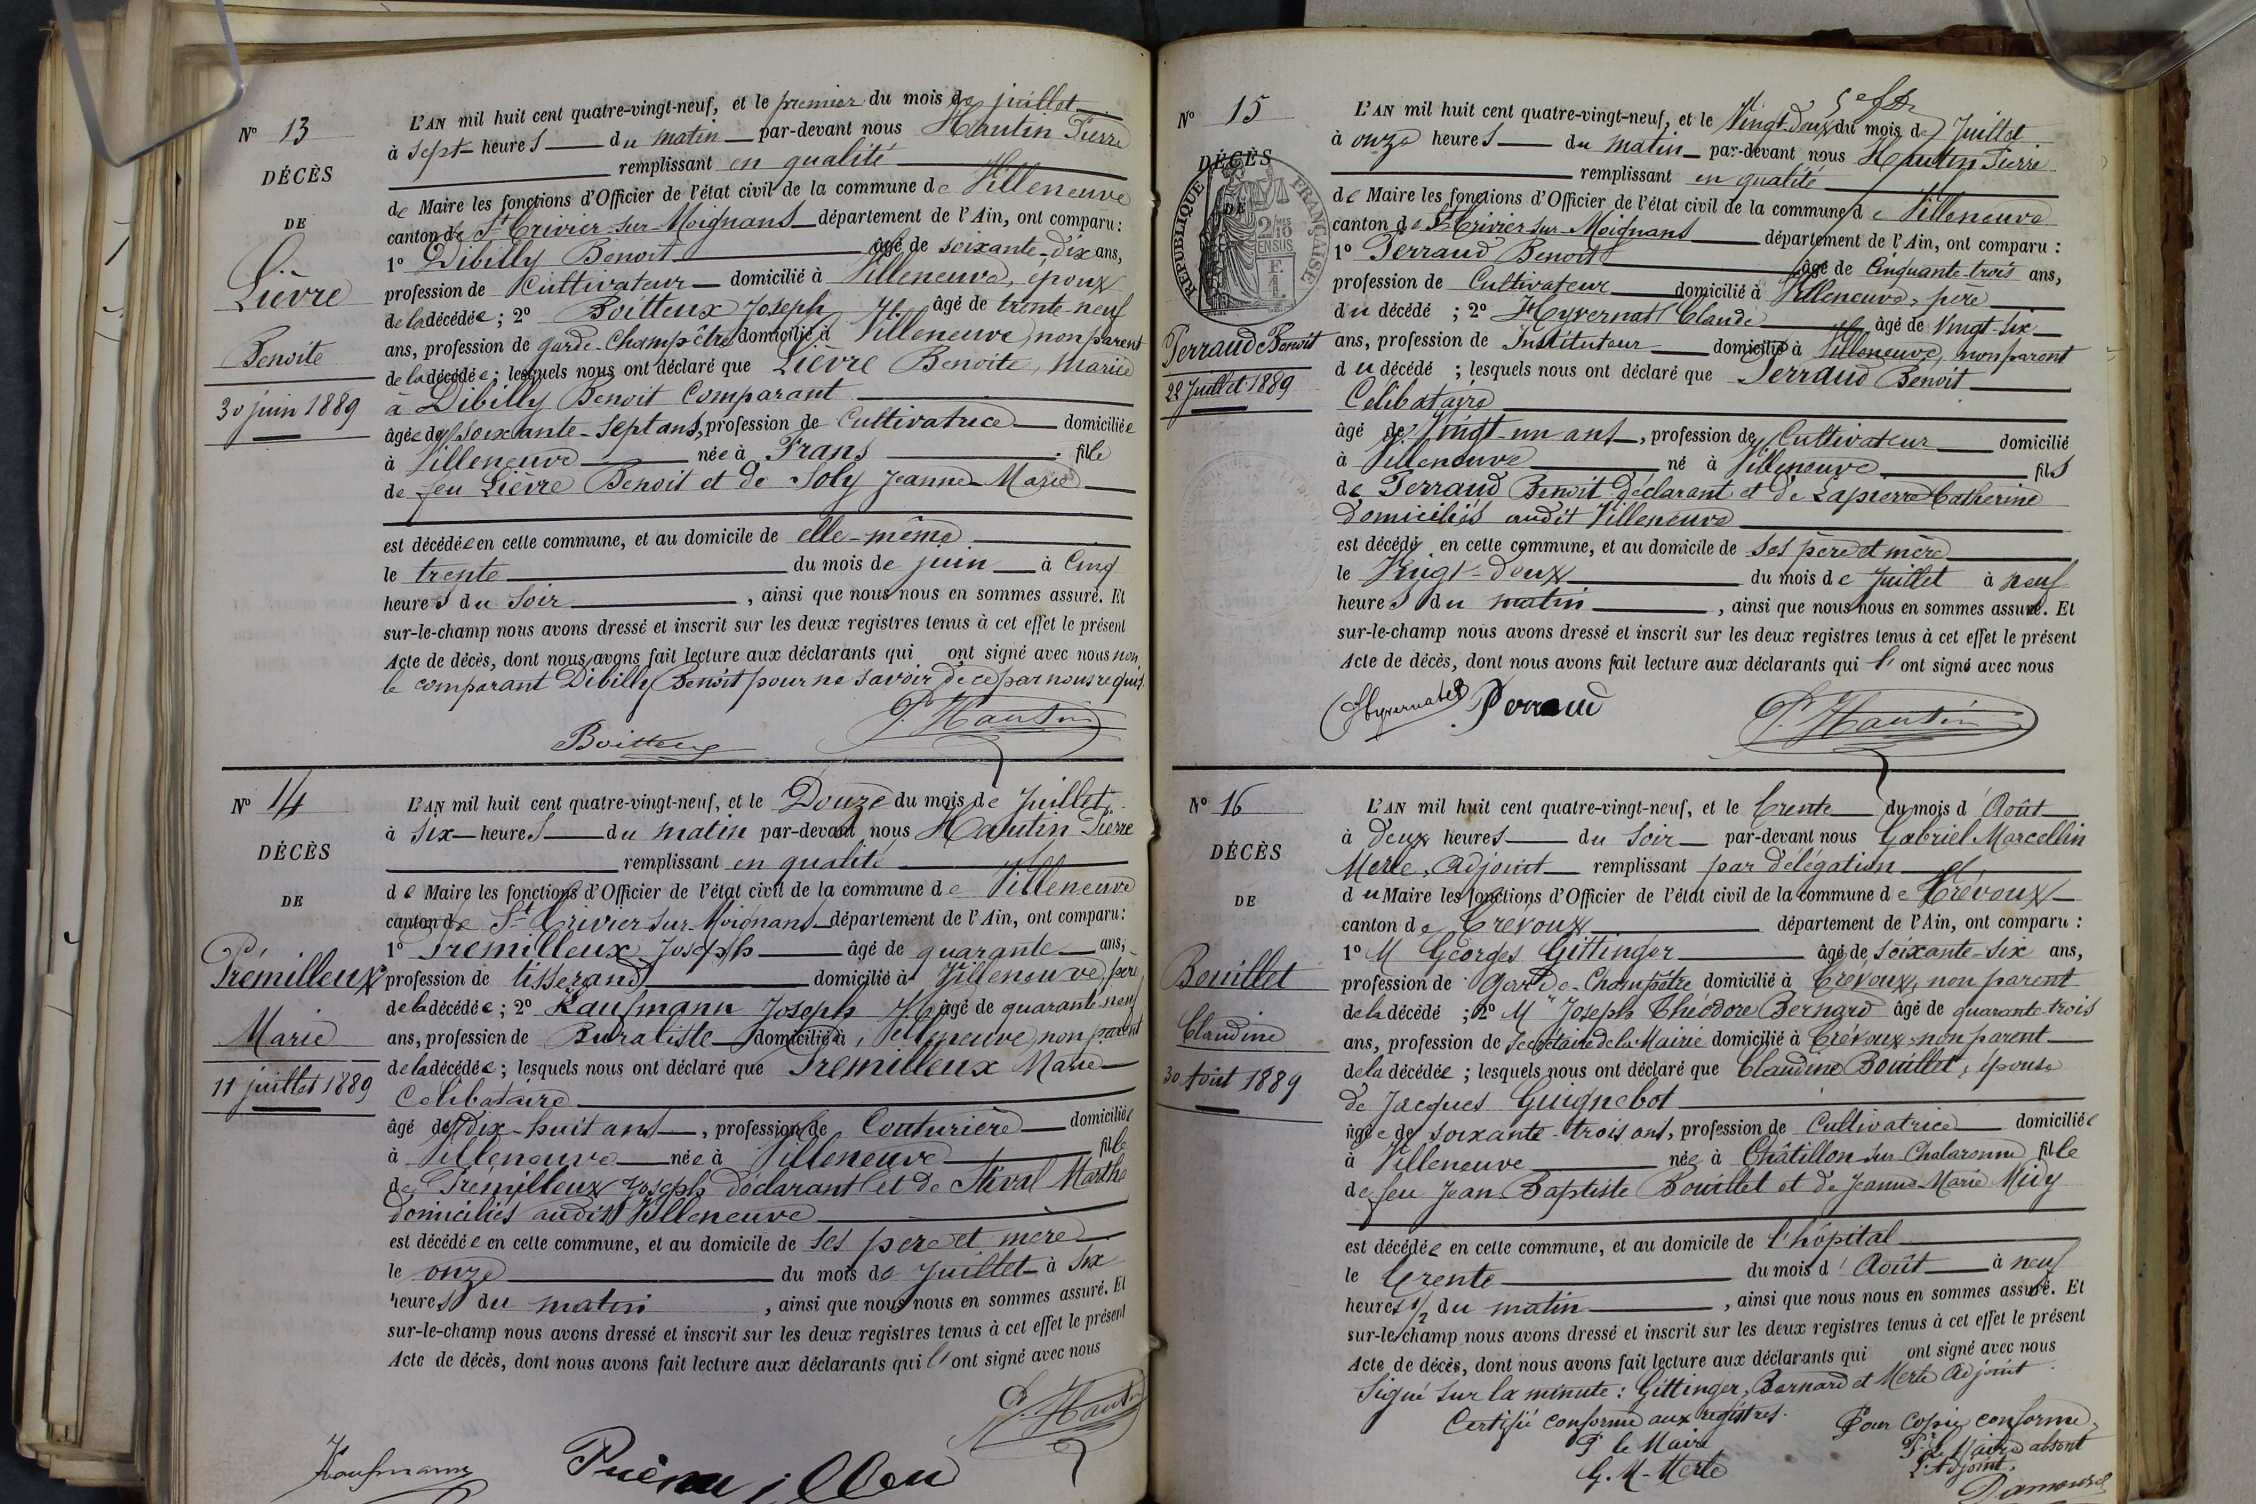 N° 13
DÉCÈS
DE
Lièvre
Benoite
30 juin 1889
L'AN mil huit cent quatre-vingt-neuf, et le premier du mois de juillet
à sept heures du matin par-devant nous Hautin Pierre
remplissant en qualité
de Maire les fonctions d'Officier de l'état civil de la commune de Villeneuve
canton de St Trivier-sur-Moignans département de l'Ain, ont comparu:
1° Dibilly Benoit âgé de soixante-dix ans,
profession de Cultivateur domicilié à Villeneuve, époux
de la décédée; 2° Boitteux Joseph âgé de trente-neuf
ans, profession de garde-Champêtre domicilié à Villeneuve, non parent
de la décédée; lesquels nous ont déclaré que Lièvre Benoite, mariée
à Dibilly Benoit Comparant
âgée de soixante-sept ans, profession de Cultivatrice domiciliée
à Villeneuve née à Frans fille
de feu Lièvre Benoit et de Soly Jeanne-Marie
est décédée en cette commune, et au domicile de elle-même
le trente du mois de juin à Cinq
heures du soir, ainsi que nous nous en sommes assuré. Et
sur-le-champ nous avons dressé et inscrit sur les deux registres tenus à cet effet le présent
Acte de décès, dont nous avons fait lecture aux déclarants qui ont signé avec nous non
le comparant Dibilly Benoit pour ne savoir de ce par nous requis.
P. Hautin
Boitteux
N° 14
DÉCÈS
DE
Prémilleux
Marie
11 juillet 1889
L'AN mil huit cent quatre-vingt-neuf, et le Douze du mois de Juillet
à six heures du matin par-devant nous Hautin Pierre
remplissant en qualité
de Maire les fonctions d'Officier de l'état civil de la commune de Villeneuve
canton de St Trivier-sur-Moignans département de l'Ain, ont comparu:
1° Prémilleux Joseph âgé de quarante ans,
profession de tisserand domicilié à Villeneuve, père
de la décédée; 2° Kaufmann Joseph âgé de quarante-neuf
ans, profession de Buraliste domicilié à Villeneuve, non parent
de la décédée; lesquels nous ont déclaré que Prémilleux Marie
Célibataire
âgé de dix-huit ans, profession de Couturière domiciliée
à Villeneuve née à Villeneuve fille
de Prémilleux Joseph déclarant et de Marthe
domiciliés audit Villeneuve
est décédée en cette commune, et au domicile de ses père et mère
le onze du mois de Juillet à six
heures du matin, ainsi que nous nous en sommes assuré. Et
sur-le-champ nous avons dressé et inscrit sur les deux registres tenus à cet effet le présent
Acte de décès, dont nous avons fait lecture aux déclarants qui l' ont signé avec nous
P. Hautin
Kaufmann
N° 15
DÉCÈS
DE
RÉPUBLIQUE FRANÇAISE
2/10 EN SUS
Perraud Benoit
22 Juillet 1889
L'AN mil huit cent quatre-vingt-neuf, et le Vingt-Deux du mois de Juillet
à onze heures du matin par-devant nous Hautin Pierre
remplissant en qualité
de Maire les fonctions d'Officier de l'état civil de la commune de Villeneuve
canton de St Trivier-sur-Moignans département de l'Ain, ont comparu:
1° Perraud Benoit âgé de Cinquante-trois ans,
profession de Cultivateur domicilié à Villeneuve, père
du décédé; 2° Hyvernat Claude âgé de Vingt-six
ans, profession de Instituteur domicilié à Villeneuve, non parent
du décédé; lesquels nous ont déclaré que Perraud Benoit
Célibataire
âgé de Vingt-un ans, profession de Cultivateur domicilié
à Villeneuve né à Villeneuve fils
de Perraud Benoit déclarant et de Lapierre Catherine
domiciliés audit Villeneuve
est décédé en cette commune, et au domicile de ses père et mère
le Vingt-deux du mois de Juillet à neuf
heures du matin, ainsi que nous nous en sommes assuré. Et
sur-le-champ nous avons dressé et inscrit sur les deux registres tenus à cet effet le présent
Acte de décès, dont nous avons fait lecture aux déclarants qui l' ont signé avec nous
Hyvernat Perraud P. Hautin
N° 16
DÉCÈS
DE
Bouillet
Claudine
30 Août 1889
L'AN mil huit cent quatre-vingt-neuf, et le Trente du mois d'Août
à deux heures du soir par-devant nous Gabriel Marcellin
Merle, Adjoint remplissant par délégation
du Maire les fonctions d'Officier de l'état civil de la commune de Trévoux
canton de Trévoux département de l'Ain, ont comparu:
1° M Georges Gittinger âgé de soixante-six ans,
profession de Garde-Champêtre domicilié à Trévoux, non parent
de la décédé; 2° M Joseph Théodore Bernard âgé de quarante-trois
ans, profession de Secrétaire de la Mairie domicilié à Trévoux, non parent
de la décédée; lesquels nous ont déclaré que Claudine Bouillet, épouse
de Jacques Guignebot
âgée de soixante-trois ans, profession de Cultivatrice domiciliée
à Villeneuve née à Châtillon-sur-Chalaronne fille
de feu Jean-Baptiste Bouillet et de Jeanne-Marie Midy
est décédée en cette commune, et au domicile de l'hôpital
le Trente du mois d'Août à neuf
heures 1/2 du matin, ainsi que nous nous en sommes assuré. Et
sur-le-champ nous avons dressé et inscrit sur les deux registres tenus à cet effet le présent
Acte de décès, dont nous avons fait lecture aux déclarants qui ont signé avec nous
Signé sur la minute: Gittinger, Bernard et Merle Adjoint
Certifié conforme aux registres.
P. le Maire
G. M. Merle
Pour Copie conforme,
Pr Le Maire absent
L'Adjoint.